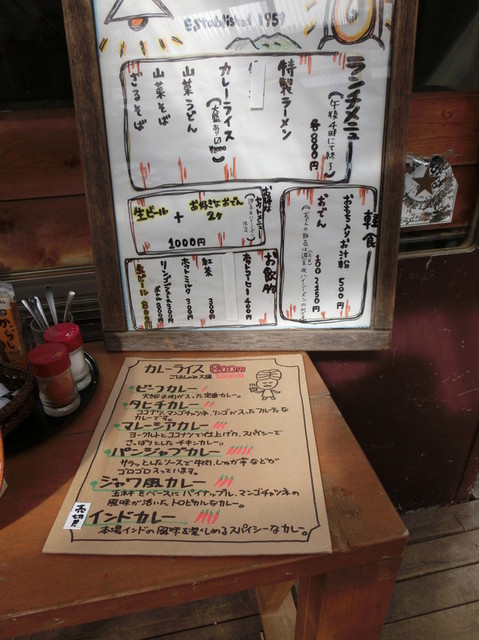 Established 1959
ランチメニュー
(午後4時にて終了)
各800円
特製ラーメン
カレーライス
山菜うどん
山菜そば
ざるそば
軽食
おもち入りお汁粉 500円
おでん
お好きなおでん
2ケ
+
生ビール
1000円
お飲物
ホットコーヒー 400円
紅茶 300円
ホットミルク 300円
生ビール 800円
カレーライス
ごはんのみ大盛
ビーフカレー
大きな牛肉が入った定番カレー。
タヒチカレー
ココナツ、マンゴチャツネ、リンゴが入ったフルティな
カレーです。
マレーシアカレー
ヨーグルトとココナツで仕上げた、スパイシーで
さっぱりとしたチキンカレー。
パンジャブカレー
サラッとしたソースで牛肉、じゃが芋などが
ゴロゴロ入っています。
ジャワ風カレー
玉ネギをベースにパイナップル、マンゴチャツネの
風味が活いたトロピカルなカレー。
売切
インドカレー
本場インドの風味を楽しめるスパイシーなカレー。